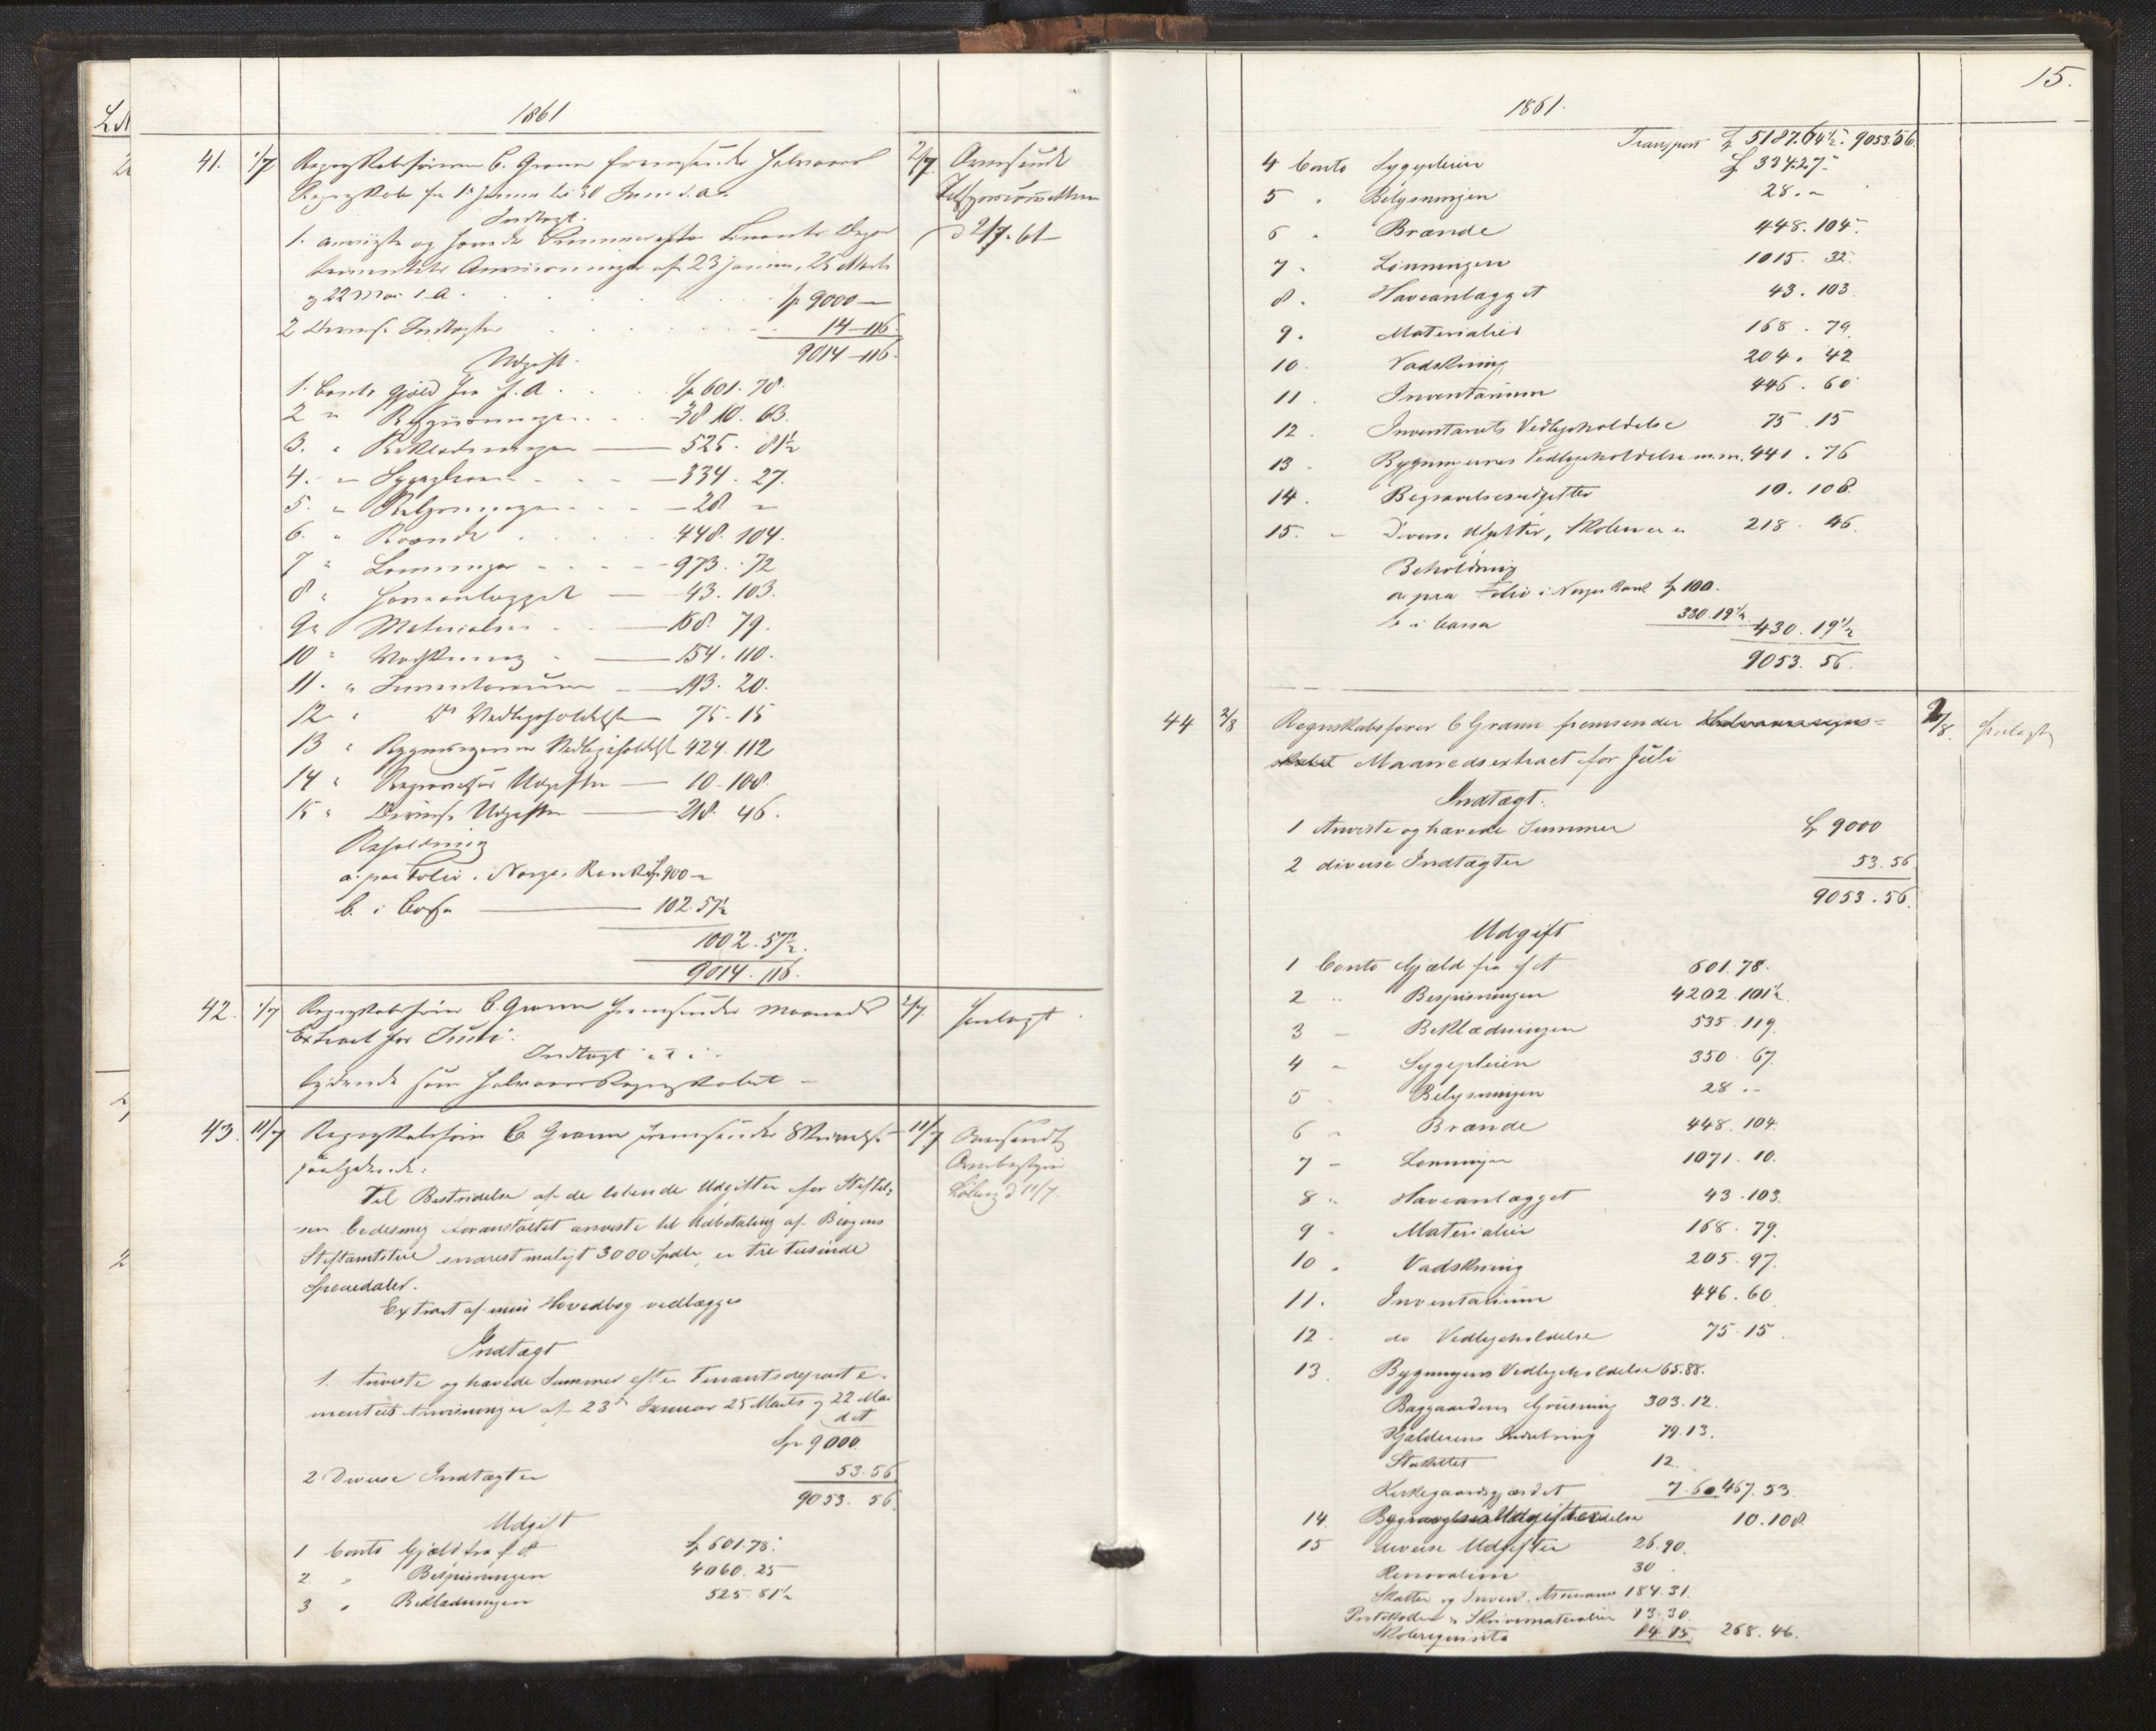 1861
41. 1/7 Regnskabsfører C. Grann fremsender Halvaars 2/7. Oversendt
Regnskab fra 1 Januar til 30 Juni d. A.
Indtægt. d 2/7. 61
1. anviste og hævede Summer efter Finants Depar
tementets Anvisninger af 23 Januar, 25 Marts
og 22 Mai d. A. Sp 9000 —
2 Diverse Indtægter 14 — 116.
9014 — 116.
Udgift.
1. Conto Gjæld fra f. A. Sp 601. 78.
2 " Bespiisningen 3810. 63.
3. " Beklædningen — 525. 81½
4. " Sygepleien — 334. 27.
5. " Belysningen — 28 "
6. " Brænde 448. 104.
7 " Lønninger — 973. 72
8 " Haveanlægget — 43. 103.
9 " Materialier — 168. 79.
10 " Vadskning — 154. 110.
11. " Inventarium — 193. 20.
12 " Do Vedligeholdelse — 75. 15
13 " Bygningernes Vedligeholdelse 424. 112
14 " Begravelses Udgifter — 10. 108.
15 " Diverse Udgifter — 218. 46.
Beholdning
a. paa Folio i Norges Bank Sp 900 "
b. i Cassa — 102. 57½
1002. 57½.
9014. 116.
42. 1/7 Regnskabsfører C. Grann fremsender Maaneds 2/7. henlagt.
Extract for Juni.
Indtægt
lydende som Halvaars Regnskabet —
43. 11/7 Regnskabsfører C. Grann fremsender Skrivelse 11/7 Oversendt
saalydende:
Til Bestridelse af de løbende Udgifter for Stiftel-
sen bedes mig foranstaltet anviste til Udbetaling af Bergens
Stiftamtstue snarest muligt 3000 Spdlr, er tre tusinde
Speciedaler.
Extract af min Hovedbog vedlægges
Indtægt
1. Anviste og hævede Summer efter Finantsdeparte-
mentets Anvisninger af 23de Januar 25 Marts og 22 Mai
Sp 9000.
2 Diverse Indtægter 53. 56
9053. 56.
Udgift
1 Conto Gjæld fra f. A. Sp 601. 78.
2 " Bespisningen 4060. 25
3 " Beklædningen 525. 81½
15.
1861.
Transport Sp 5187. 64½. 9053. 56.
4 Conto Sygepleien Sp 334. 27.
5 " Belysningen 28. "
6 " Brænde 448. 104.
7 " Lønningen 1015. 32.
8. Haveanlægget 43. 103.
9. Materialier 168. 79
10. Vadskning 204. 42
11. Inventarium 446. 60
12. Inventariets Vedligeholdelse 75. 15
13 " Bygningernes Vedligeholdelse m.m. 441. 76
14. Begravelsesudgifter 10. 108.
15. " Diverse Udgifter, Skolen 218. 46.
Beholdning
a paa Folio i Norges Bank Sp 100.
b i Cassa 330. 19½ 430. 19½
9053. 56.
44 2/8 Regnskabsfører C Grann fremsender Halvaarsregns- 2/8. henlagt
skabet Maanedsextract for Juli
Indtægt.
1 Anviste og hævede Summer Sp 9000
2 diverse Indtægter 53. 56
9053. 56.
Udgift
1 Conto Gjæld fra f A 601. 78.
2 " Bespisningen 4202. 101½
3 " Beklædningen 535. 119.
4 " Sygepleien 350. 67.
5 " Belysningen 28. "
6 " Brænde 448. 104.
7 " Lønninger 1071. 10.
8 " Haveanlægget 43. 103.
9 " Materialier 168. 79.
10 " Vadskning 205. 97.
11. Inventarium 446. 60
12 " do Vedligeholdelse 75. 15.
13 Bygningens Vedligeholdelse 65. 88.
Baggaardens Gruusning 303. 12.
Kjælderens Indretning 79. 13.
Stakittet 12.
Kirkegaardsgjærdet 7. 60 467. 53.
14. Begravelses Udgifter 10. 108
15 diverse Udgifter 26. 90.
Renovation 30
Skatter og Invent. Assurance 184. 31.
Portokoder & Skrivematerialier 13. 30.
Skolerequisita 14. 15. 268. 46.